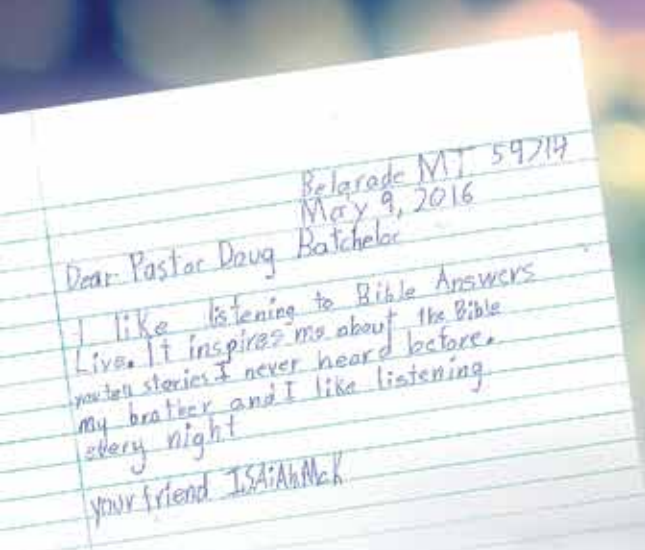 Belgrade MT 59714
May 9, 2016
Dear Pastor Doug Batchelor
I like listening to Bible Answers
Live. It inspires me about the Bible
you tell stories I never heard before.
my brother and I like listening
every night
your friend ISAiAh McK